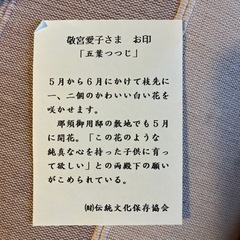 敬宮愛子さま お印
「五葉つつじ」
５月から６月にかけて枝先に
一、二個のかわいい白い花を
咲かせます。
那須御用邸の敷地でも５月
に開花。「この花のような
純真な心を持った子供に育っ
て欲しい」との両殿下の願い
がこめられている。
㈶伝統文化保存協会